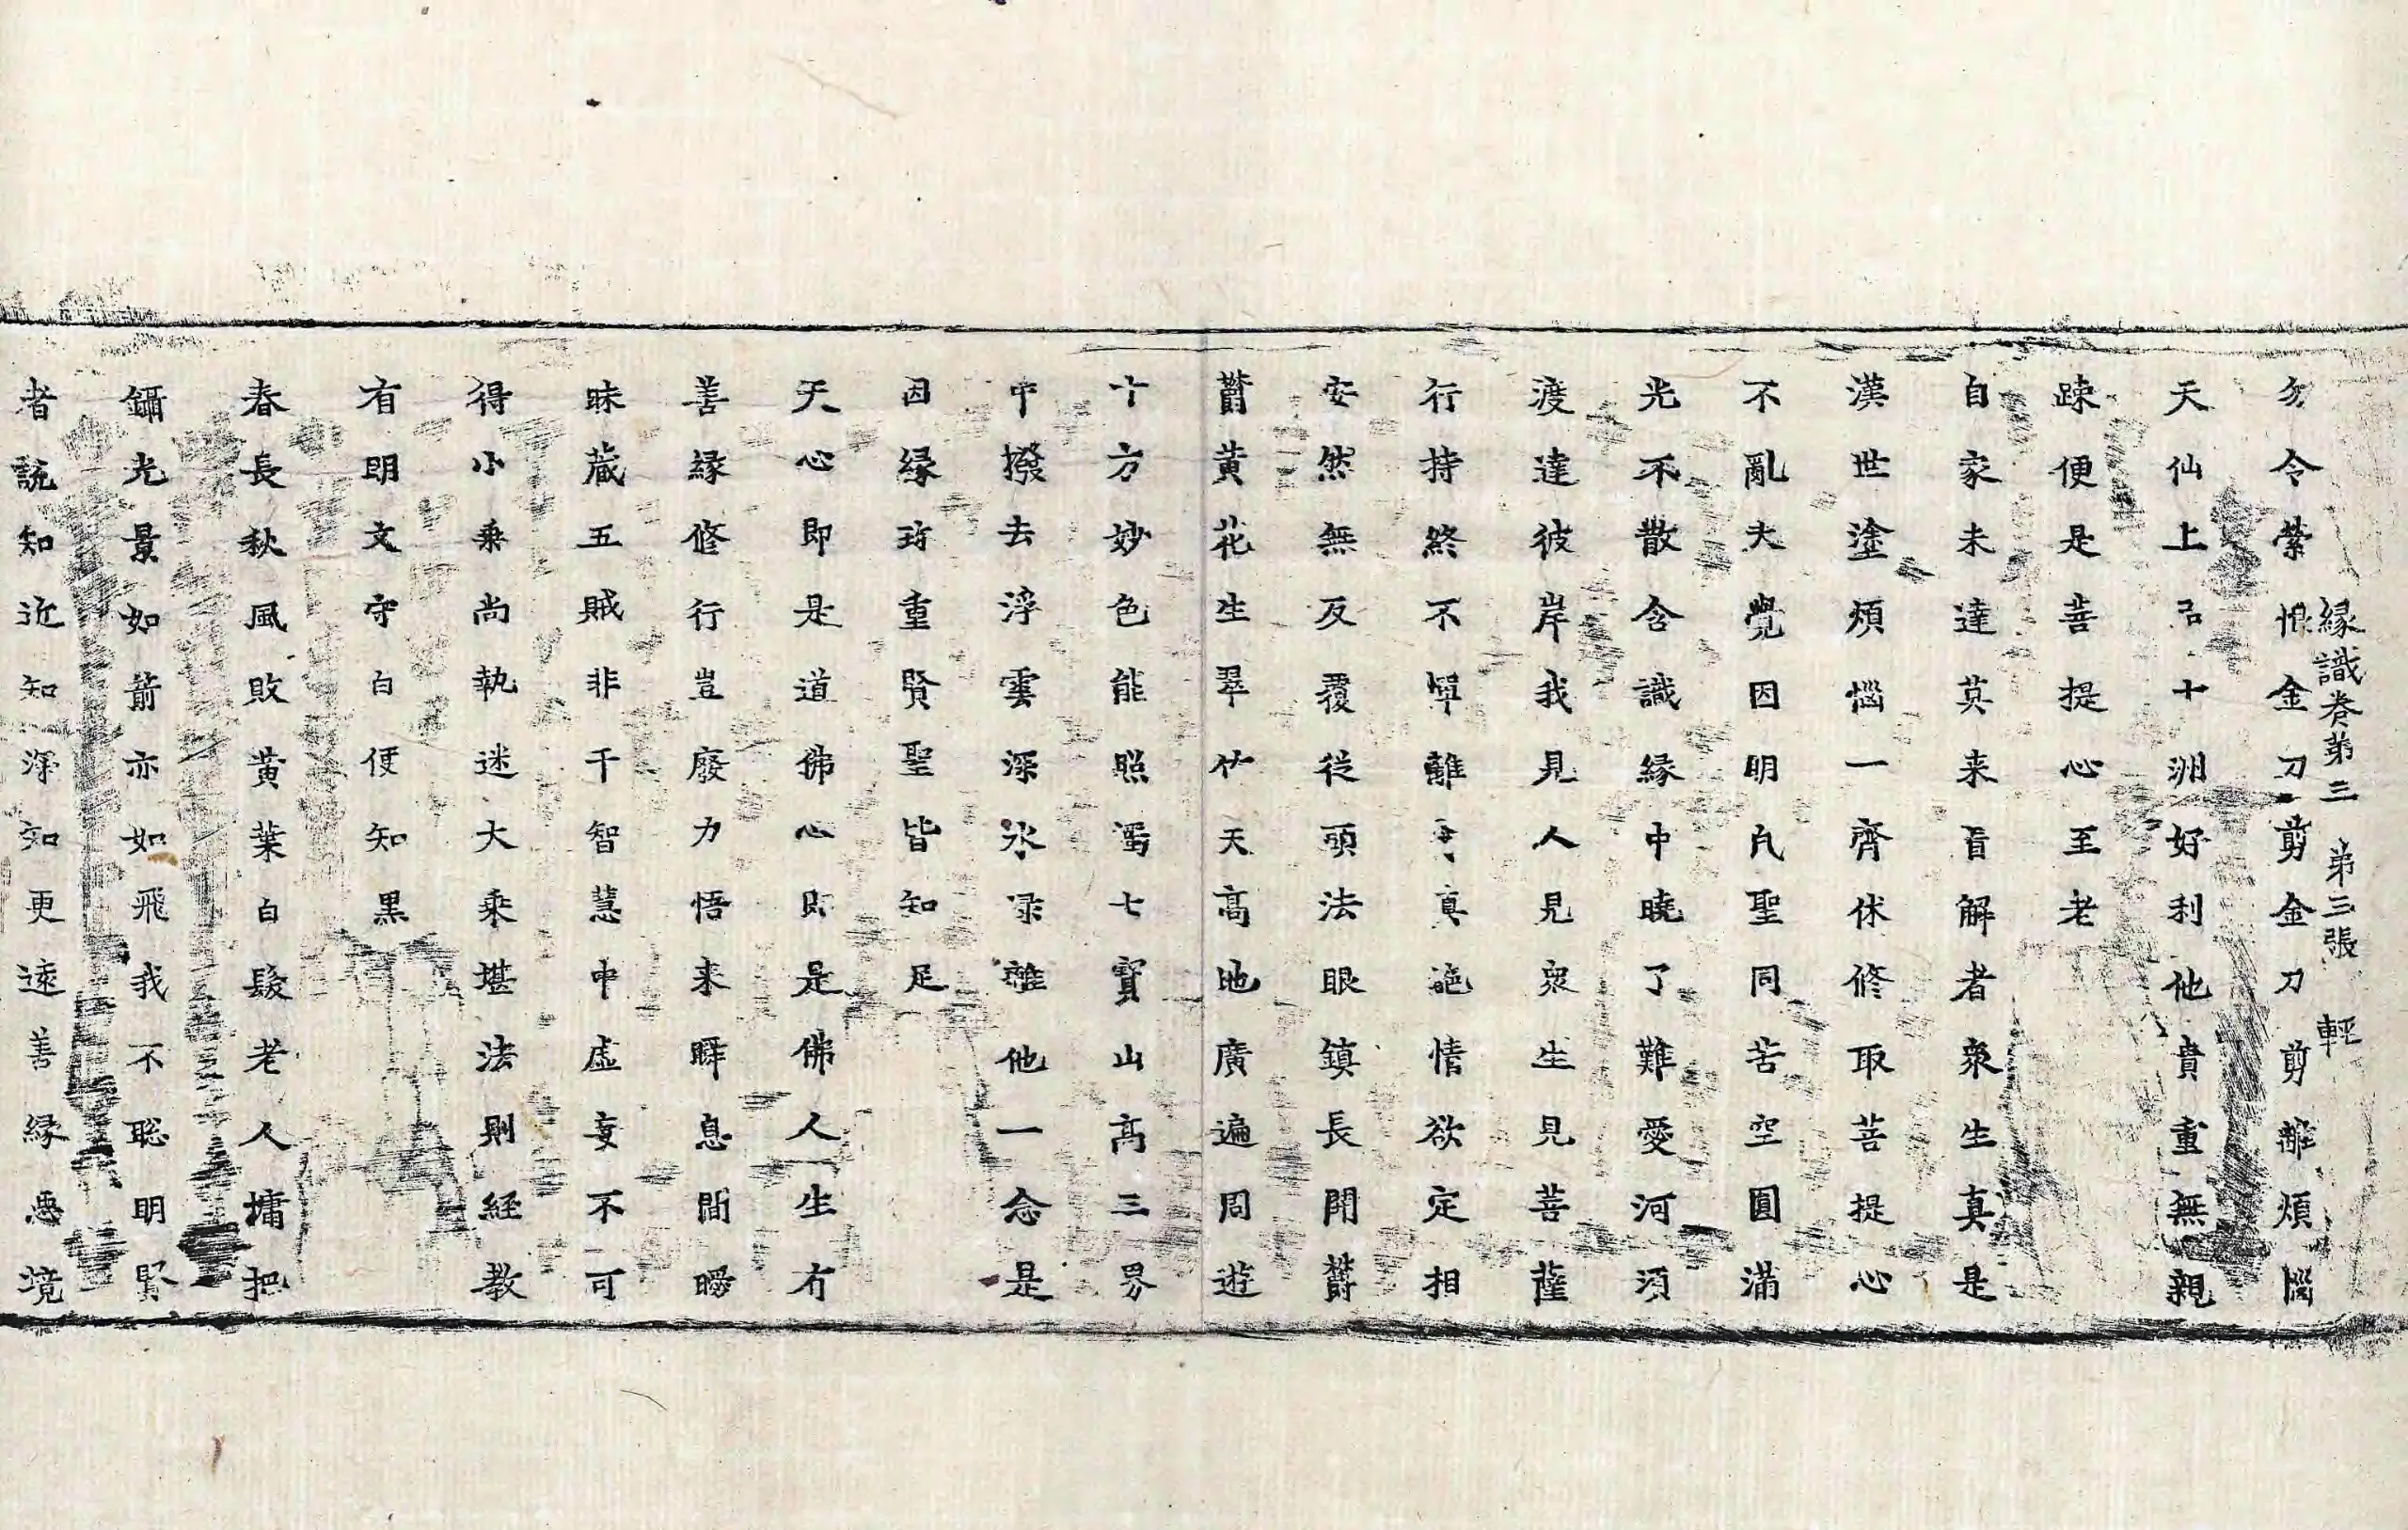 緣識卷第三 第三張 軽
勿令縈惱金刀剪金刀剪離煩惱
天仙上品十洲好利他貴重無親
踈便是菩提心至老
自家未達莫来盲解者衆生真是
漢世塗煩惱一齊休修取菩提心
不亂夫覺因明凡聖同苦空圓滿
光不散含識緣中曉了難愛河須
渡達彼岸我見人見衆生見菩薩
行持終不單離真絶情欲定相
安然無反覆從頭法眼鎮長開欝
欝黄花生翠竹天髙地廣遍周遊
十方妙色能照濁七寶山髙三界
中撥去浮雲深水淥雖他一念是
因緣珎重賢聖皆知足
天心即是道佛心即是佛人生有
善緣修行豈廢力悟来瞬息間曖
昧藏五賊非干智慧中虛妄不可
得小乗尚執迷大乗堪法則經教
有明文守白便知黒
春長秋風敗黄葉白髮老人慵把
鑷光景如箭亦如飛我不聡明賢
者說知近知深知更遠善緣惡境